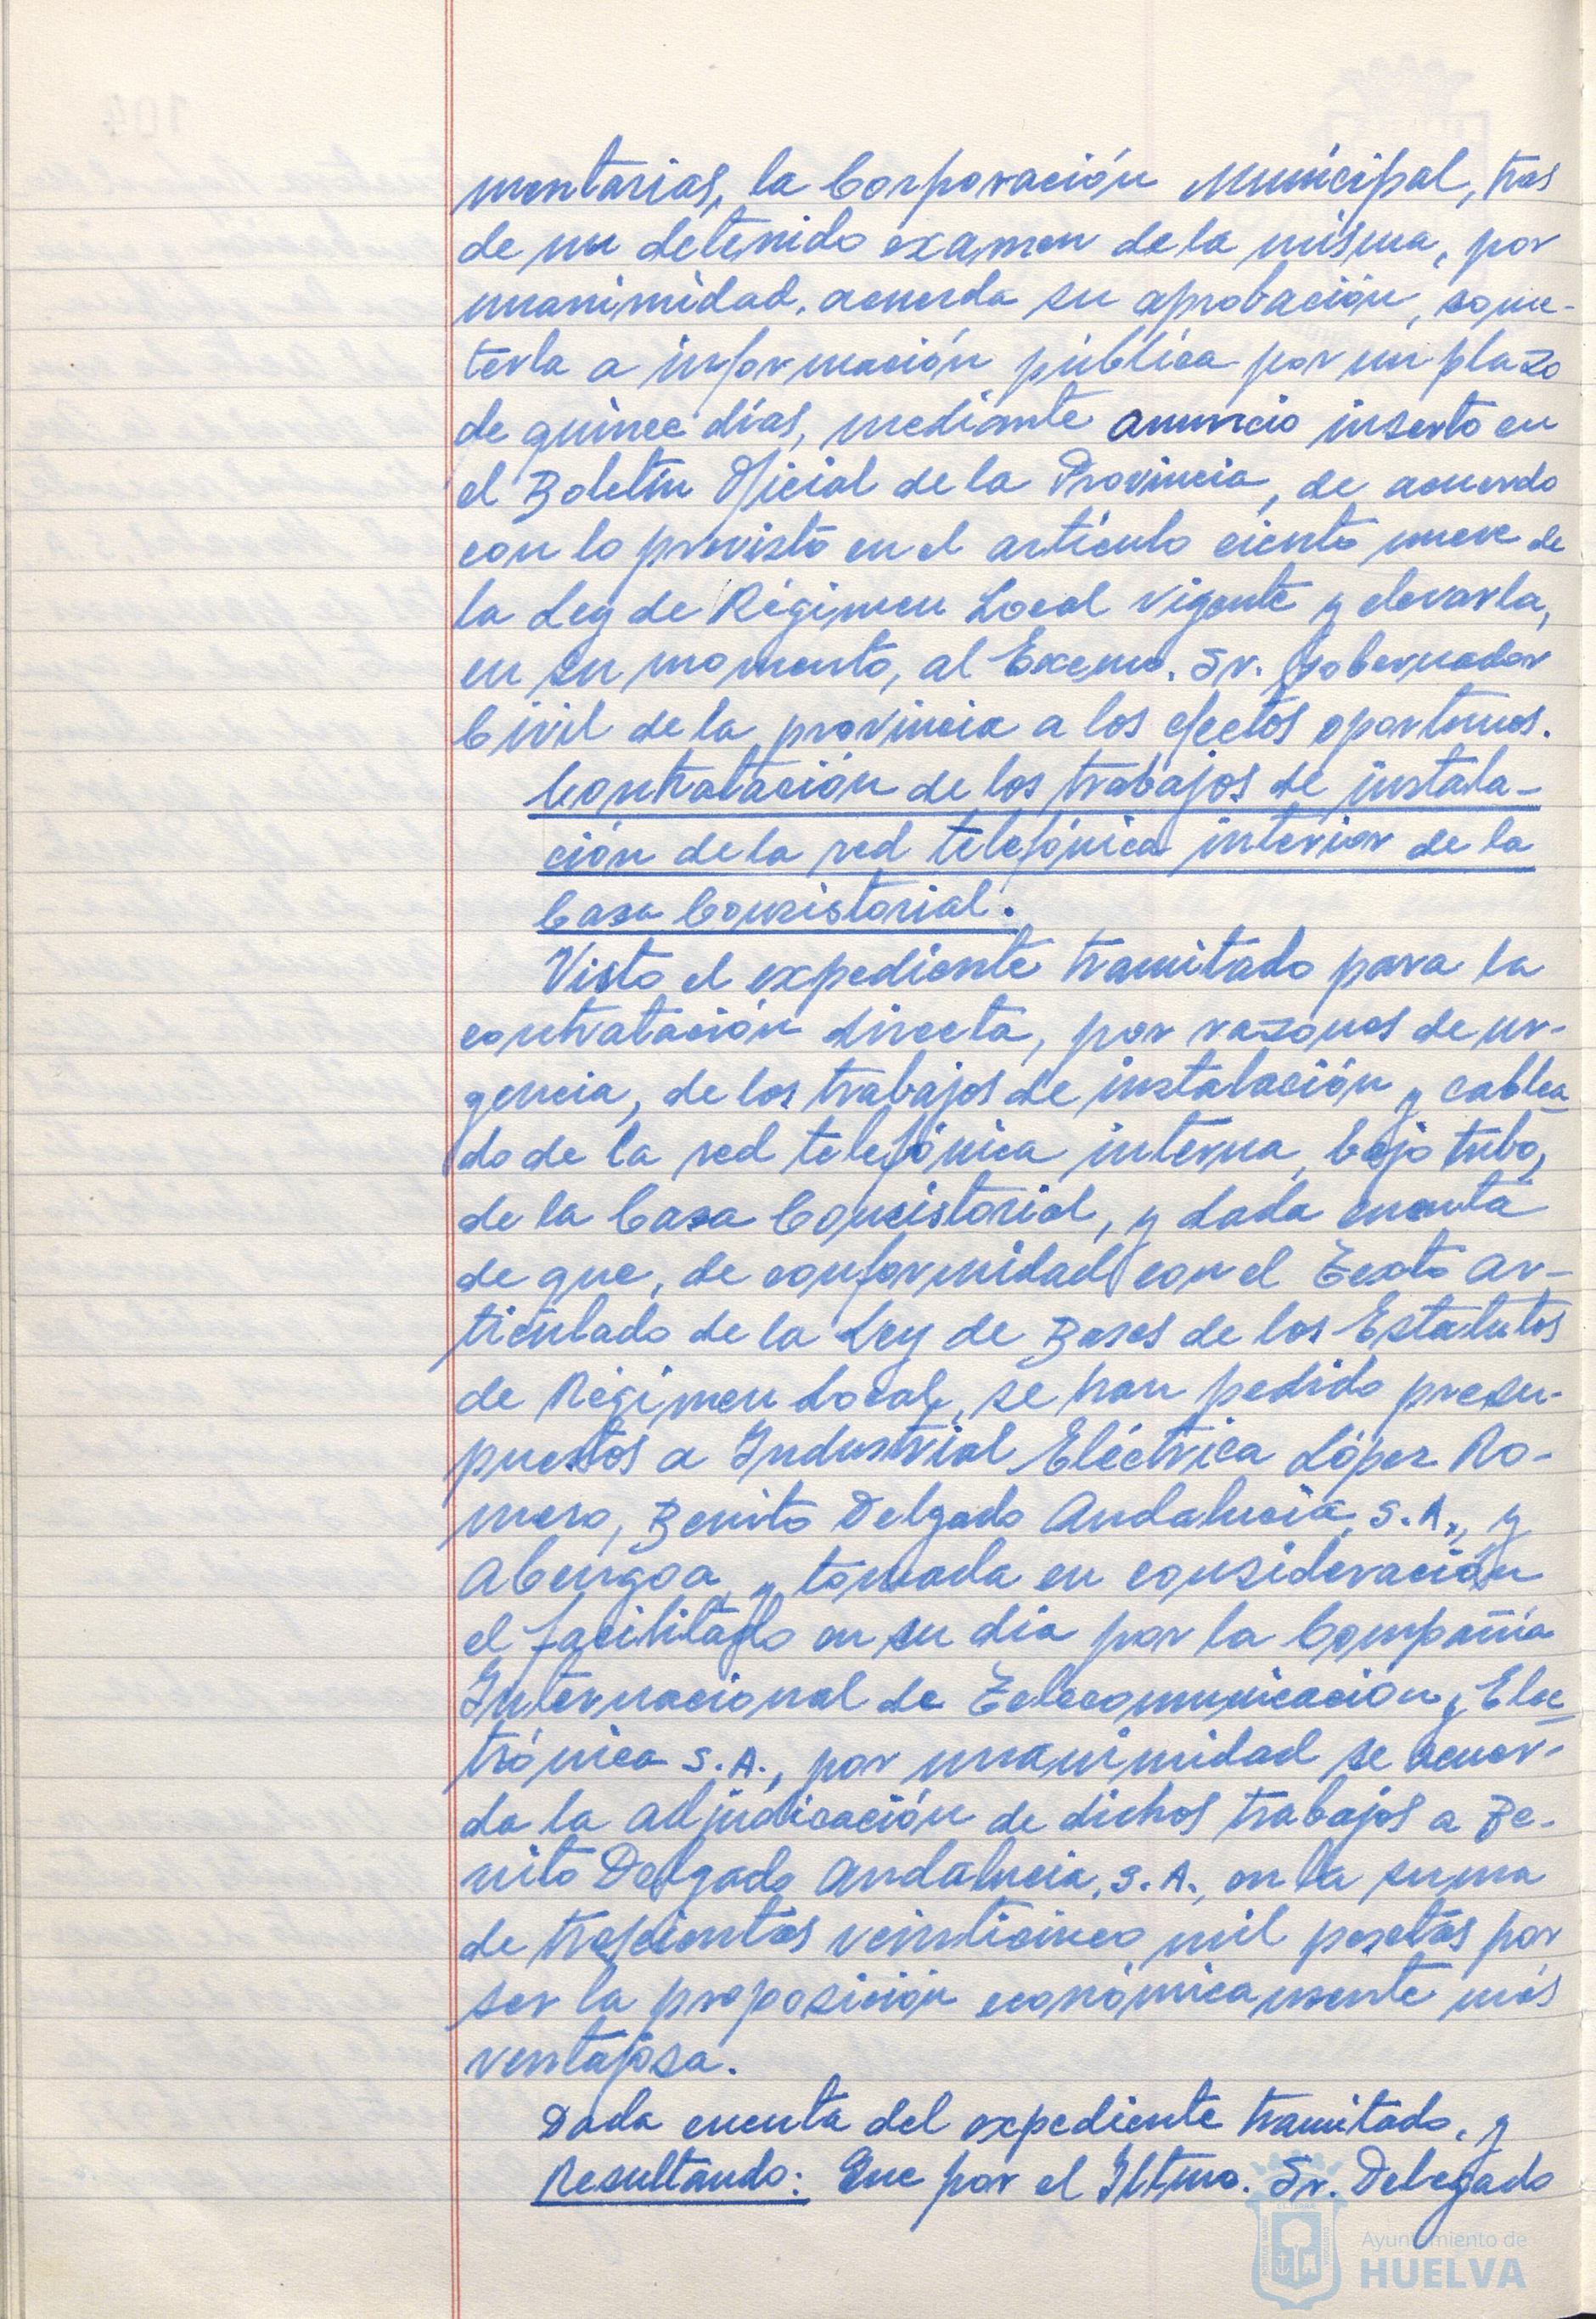 mentarias, la Corporación Municipal, tras
de un detenido examen de la misma, por
unanimidad, acuerda su aprobación, some-
terla a información pública por un plazo
de quince días, mediante anuncio inserto en
el Boletín Oficial de la Provincia, de acuerdo
con lo previsto en el artículo ciento nueve de
la Ley de Régimen Local vigente y elevarla,
en su momento, al Excmo. Sr. Gobernador
Civil de la provincia a los efectos oportunos.
Contratación de los trabajos de instala-
ción de la red telefónica interior de la
Casa Consistorial.
Visto el expediente tramitado para la
contratación directa, por razones de ur-
gencia, de los trabajos de instalación y cablea-
do de la red telefónica interna, bajo tubo,
de la Casa Consistorial, y dada cuenta
de que, de conformidad con el Texto Ar-
ticulado de la Ley de Bases de los Estatutos
de Régimen Local, se han pedido presu-
puestos a Industrial Eléctrica López Ro-
mero, Benito Delgado Andalucia, S.A., y
Abengoa, y tomada en consideración
el facilitado en su día por la Compañía
Internacional de Telecomunicación y Elec-
trónica S.A., por unanimidad se acuer-
da la adjudicación de dichos trabajos a Be-
nito Delgado Andalucia, S.A., en la suma
de trescientas veinticinco mil pesetas por
ser la proposición económicamente más
ventajosa.
Dada cuenta del expediente tramitado, y
Resultando: Que por el Iltmo. Sr. Delegado
Ayuntamiento de
HUELVA